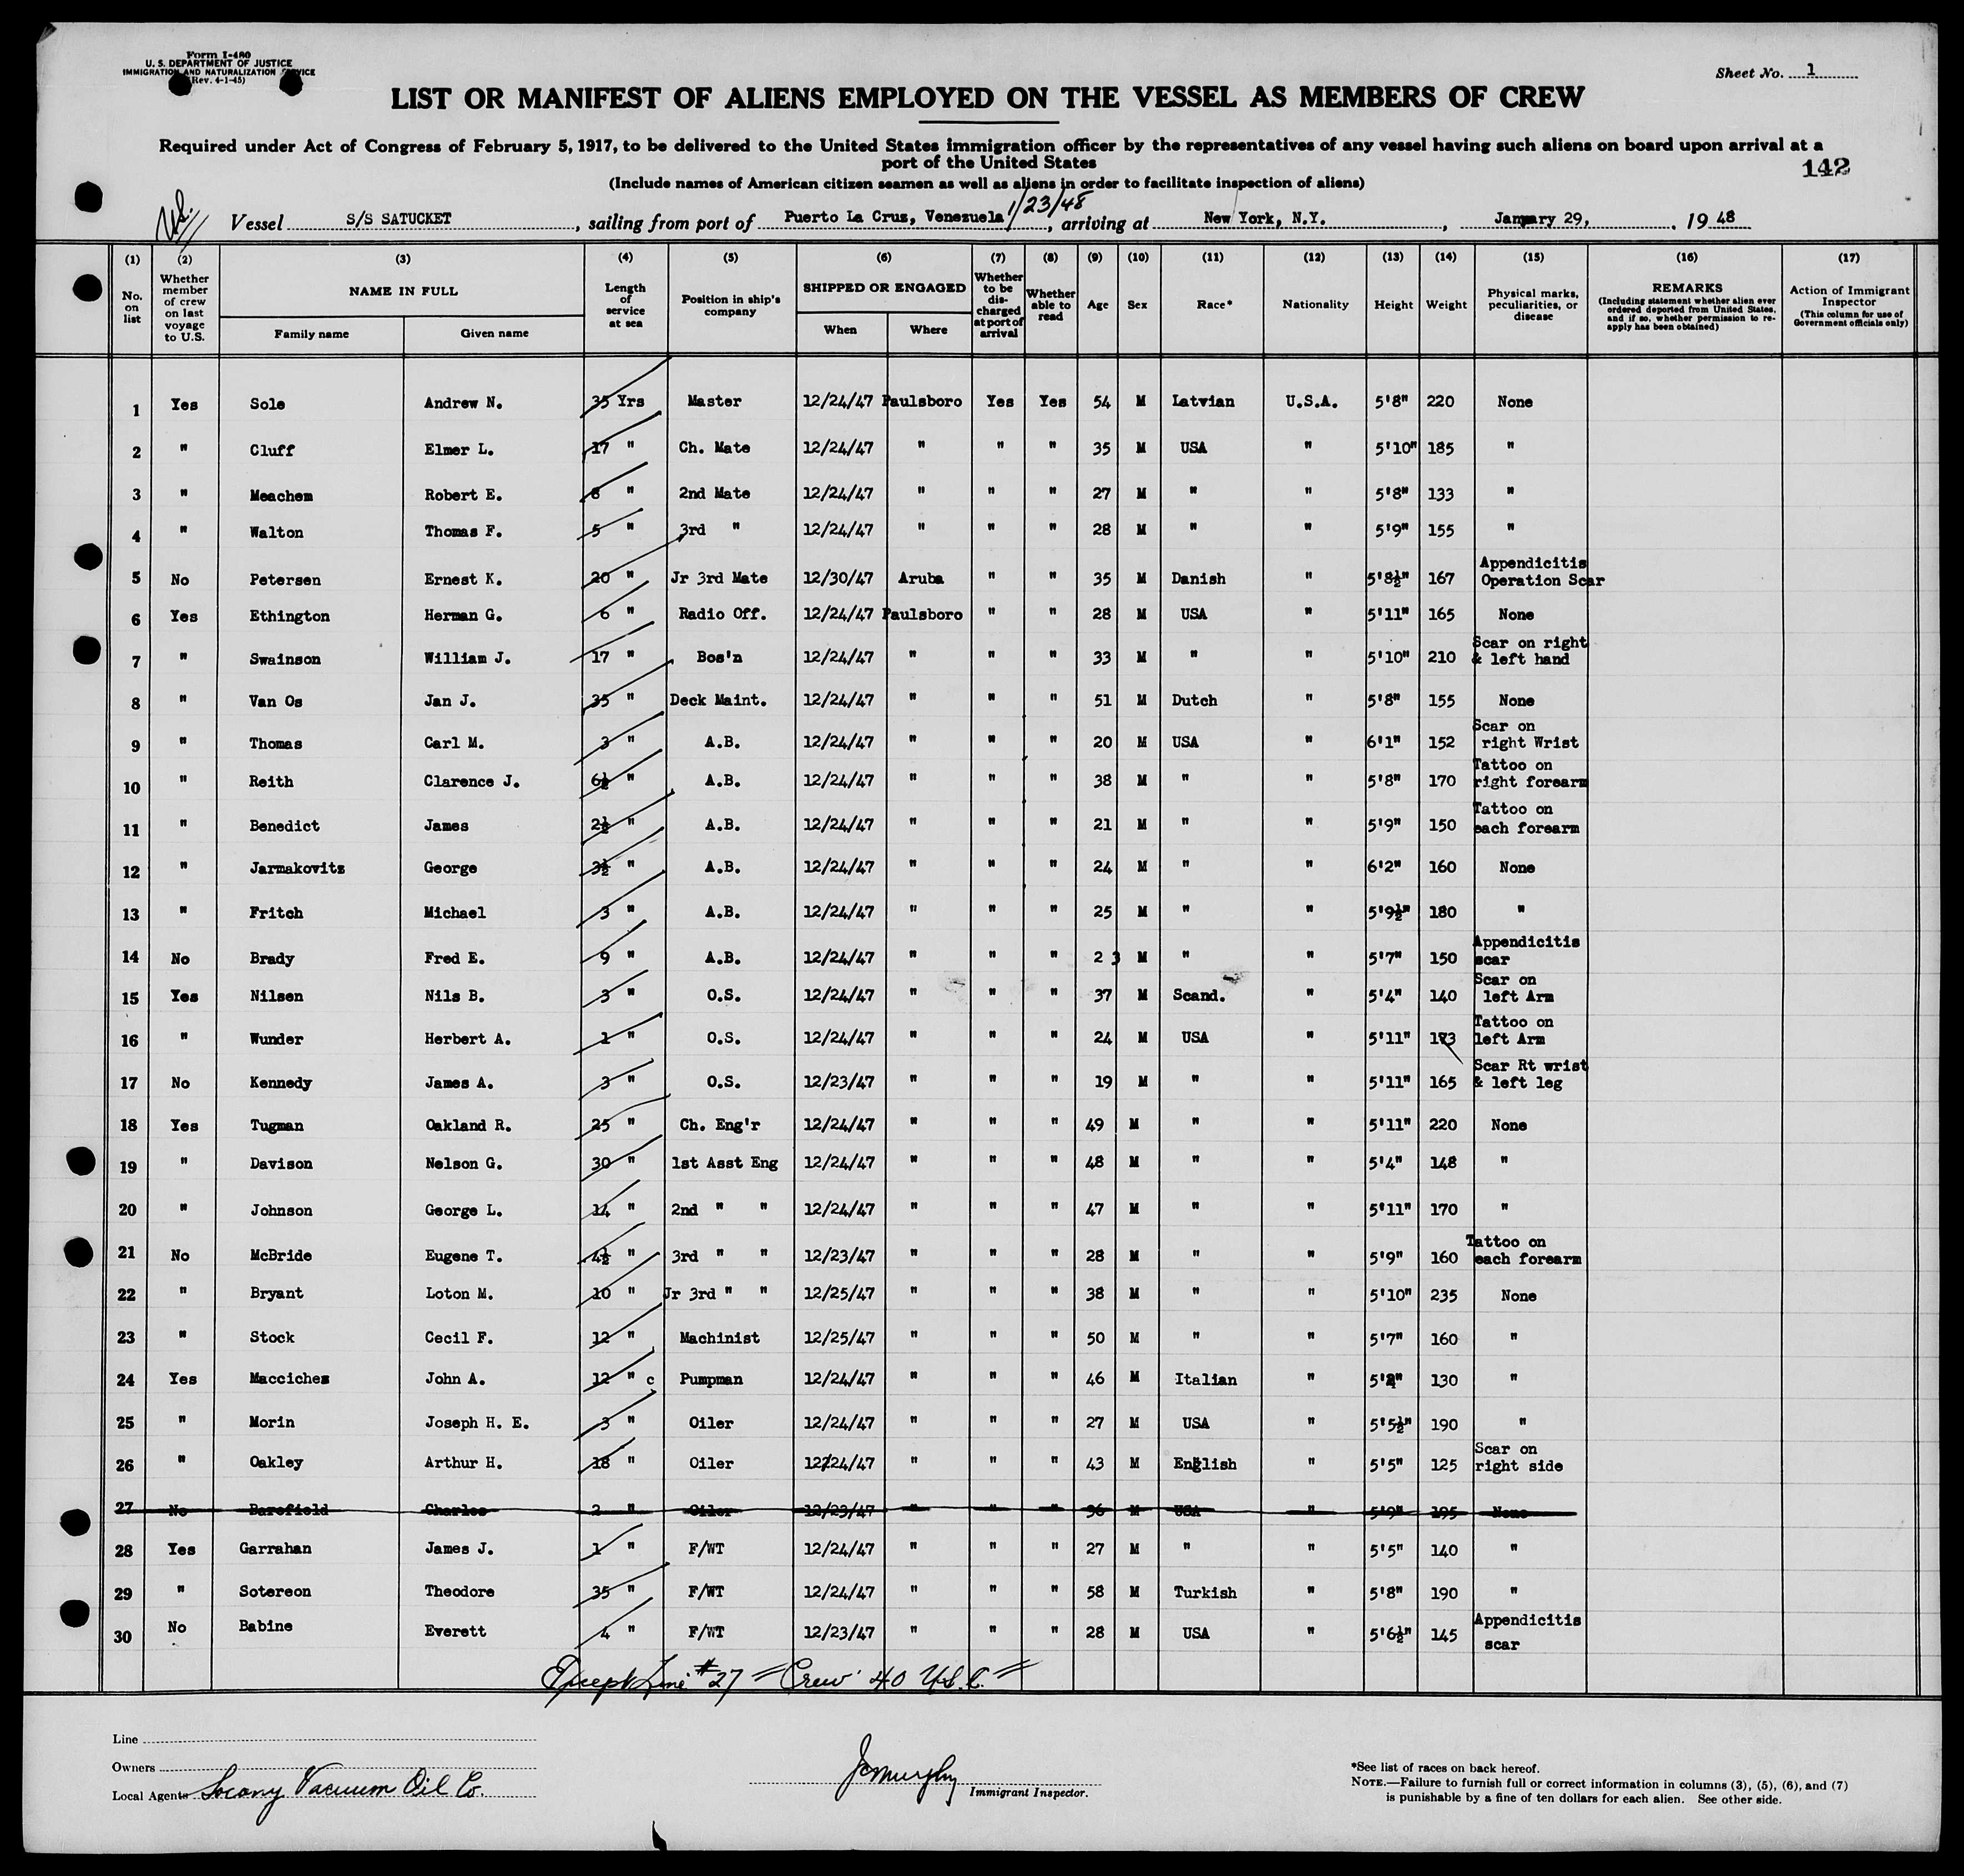 Form I-480
U. S. DEPARTMENT OF JUSTICE
IMMIGRATION AND NATURALIZATION SERVICE
(Rev. 4-1-45)
Sheet No. 1
LIST OR MANIFEST OF ALIENS EMPLOYED ON THE VESSEL AS MEMBERS OF CREW
Required under Act of Congress of February 5, 1917, to be delivered to the United States immigration officer by the representatives of any vessel having such aliens on board upon arrival at a
port of the United States
142
(Include names of American citizen seamen as well as aliens in order to facilitate inspection of aliens)
Vessel S/S SATUCKET, sailing from port of Puerto La Cruz, Venezuela 1/23/48, arriving at New York, N.Y., January 29, 1948
(1) No. on list
(2) Whether member of crew on last voyage to U.S.
(3) NAME IN FULL
Family name Given name
(4) Length of service at sea
(5) Position in ship's company
(6) SHIPPED OR ENGAGED
When Where
(7) Whether to be discharged at port of arrival
(8) Whether able to read
(9) Age
(10) Sex
(11) Race*
(12) Nationality
(13) Height
(14) Weight
(15) Physical marks, peculiarities, or disease
(16) REMARKS (Including statement whether alien ever ordered deported from United States, and if so, whether permission to reapply has been obtained)
(17) Action of Immigrant Inspector (This column for use of Government officials only)
1 Yes Sole Andrew N. 35 Yrs Master 12/24/47 Paulsboro Yes Yes 54 M Latvian U.S.A. 5'8" 220 None
2 " Cluff Elmer L. 17 " Ch. Mate 12/24/47 " " " 35 M USA " 5'10" 185 "
3 " Meachem Robert E. 8 " 2nd Mate 12/24/47 " " " 27 M " " 5'8" 133 "
4 " Walton Thomas F. 5 " 3rd " 12/24/47 " " " 28 M " " 5'9" 155 "
5 No Petersen Ernest K. 20 " Jr 3rd Mate 12/30/47 Aruba " " 35 M Danish " 5'8½" 167 Appendicitis Operation Scar
6 Yes Ethington Herman G. 6 " Radio Off. 12/24/47 Paulsboro " " 28 M USA " 5'11" 165 None
7 " Swainson William J. 17 " Bos'n 12/24/47 " " " 33 M " " 5'10" 210 Scar on right & left hand
8 " Van Os Jan J. 35 " Deck Maint. 12/24/47 " " " 51 M Dutch " 5'8" 155 None
9 " Thomas Carl M. 3 " A.B. 12/24/47 " " " 20 M USA " 6'1" 152 Scar on right Wrist
10 " Reith Clarence J. 6½ " A.B. 12/24/47 " " " 38 M " " 5'8" 170 Tattoo on right forearm
11 " Benedict James 2½ " A.B. 12/24/47 " " " 21 M " " 5'9" 150 Tattoo on each forearm
12 " Jarmakovitz George 3½ " A.B. 12/24/47 " " " 24 M " " 6'2" 160 None
13 " Fritch Michael 3 " A.B. 12/24/47 " " " 25 M " " 5'9½" 180 "
14 No Brady Fred E. 9 " A.B. 12/24/47 " " " 2 3 M " " 5'7" 150 Appendicitis scar
15 Yes Nilsen Nils B. 3 " O.S. 12/24/47 " " " 37 M Scand. " 5'4" 140 Scar on left Arm
16 " Wunder Herbert A. 1 " O.S. 12/24/47 " " " 24 M USA " 5'11" 173 Tattoo on left Arm
17 No Kennedy James A. 3 " O.S. 12/23/47 " " " 19 M " " 5'11" 165 Scar Rt wrist & left leg
18 Yes Tugman Oakland R. 25 " Ch. Eng'r 12/24/47 " " " 49 M " " 5'11" 220 None
19 " Davison Nelson G. 30 " 1st Asst Eng 12/24/47 " " " 48 M " " 5'4" 148 "
20 " Johnson George L. 14 " 2nd " " 12/24/47 " " " 47 M " " 5'11" 170 "
21 No McBride Eugene T. 4½ " 3rd " " 12/23/47 " " " 28 M " " 5'9" 160 Tattoo on each forearm
22 " Bryant Loton M. 10 " Jr 3rd " " 12/25/47 " " " 38 M " " 5'10" 235 None
23 " Stock Cecil F. 12 " Machinist 12/25/47 " " " 50 M " " 5'7" 160 "
24 Yes Macciches John A. 12 " c Pumpman 12/24/47 " " " 46 M Italian " 130 "
25 " Morin Joseph H. E. 3 " Oiler 12/24/47 " " " 27 M USA " 5'5½" 190 "
26 " Oakley Arthur H. 18 " Oiler 12/24/47 " " " 43 M English " 5'5" 125 Scar on right side
27 No Barefield Charles 2 " Oiler 12/23/47 " " " 36 M USA " 5'9" 195 None
28 Yes Garrahan James J. 1 " F/WT 12/24/47 " " " 27 M " " 5'5" 140 "
29 " Sotereon Theodore 35 " F/WT 12/24/47 " " " 58 M Turkish " 5'8" 190 "
30 No Babine Everett 4 " F/WT 12/23/47 " " " 28 M USA " 5'6½" 145 Appendicitis scar
Except Line #27 = Crew 40 U.S.C. =
Line
Owners
Local Agents Socony Vacuum Oil Co.
JCMurphy
Immigrant Inspector.
*See list of races on back hereof.
NOTE.—Failure to furnish full or correct information in columns (3), (5), (6), and (7)
is punishable by a fine of ten dollars for each alien. See other side.